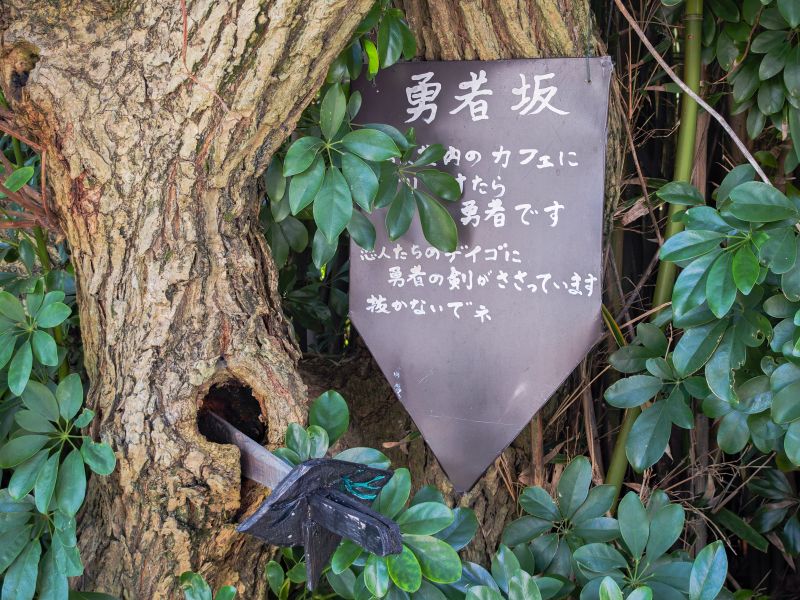 勇者坂
内のカフェに
けたら
勇者です
恋人たちのデイゴに
勇者の剣がささっています
抜かないでネ